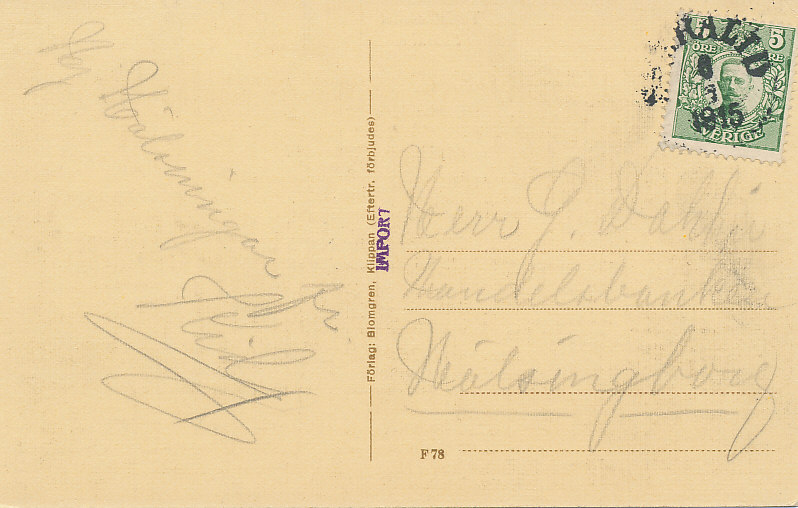 Hälsningar
Förlag: Blomgren, Klippan (Eftertr. förbjudes)
IMPORT
5
ÖRE
SVERIGE
1915
Herr G. Dahlin
Handelsbanken
Hälsingborg
F 78